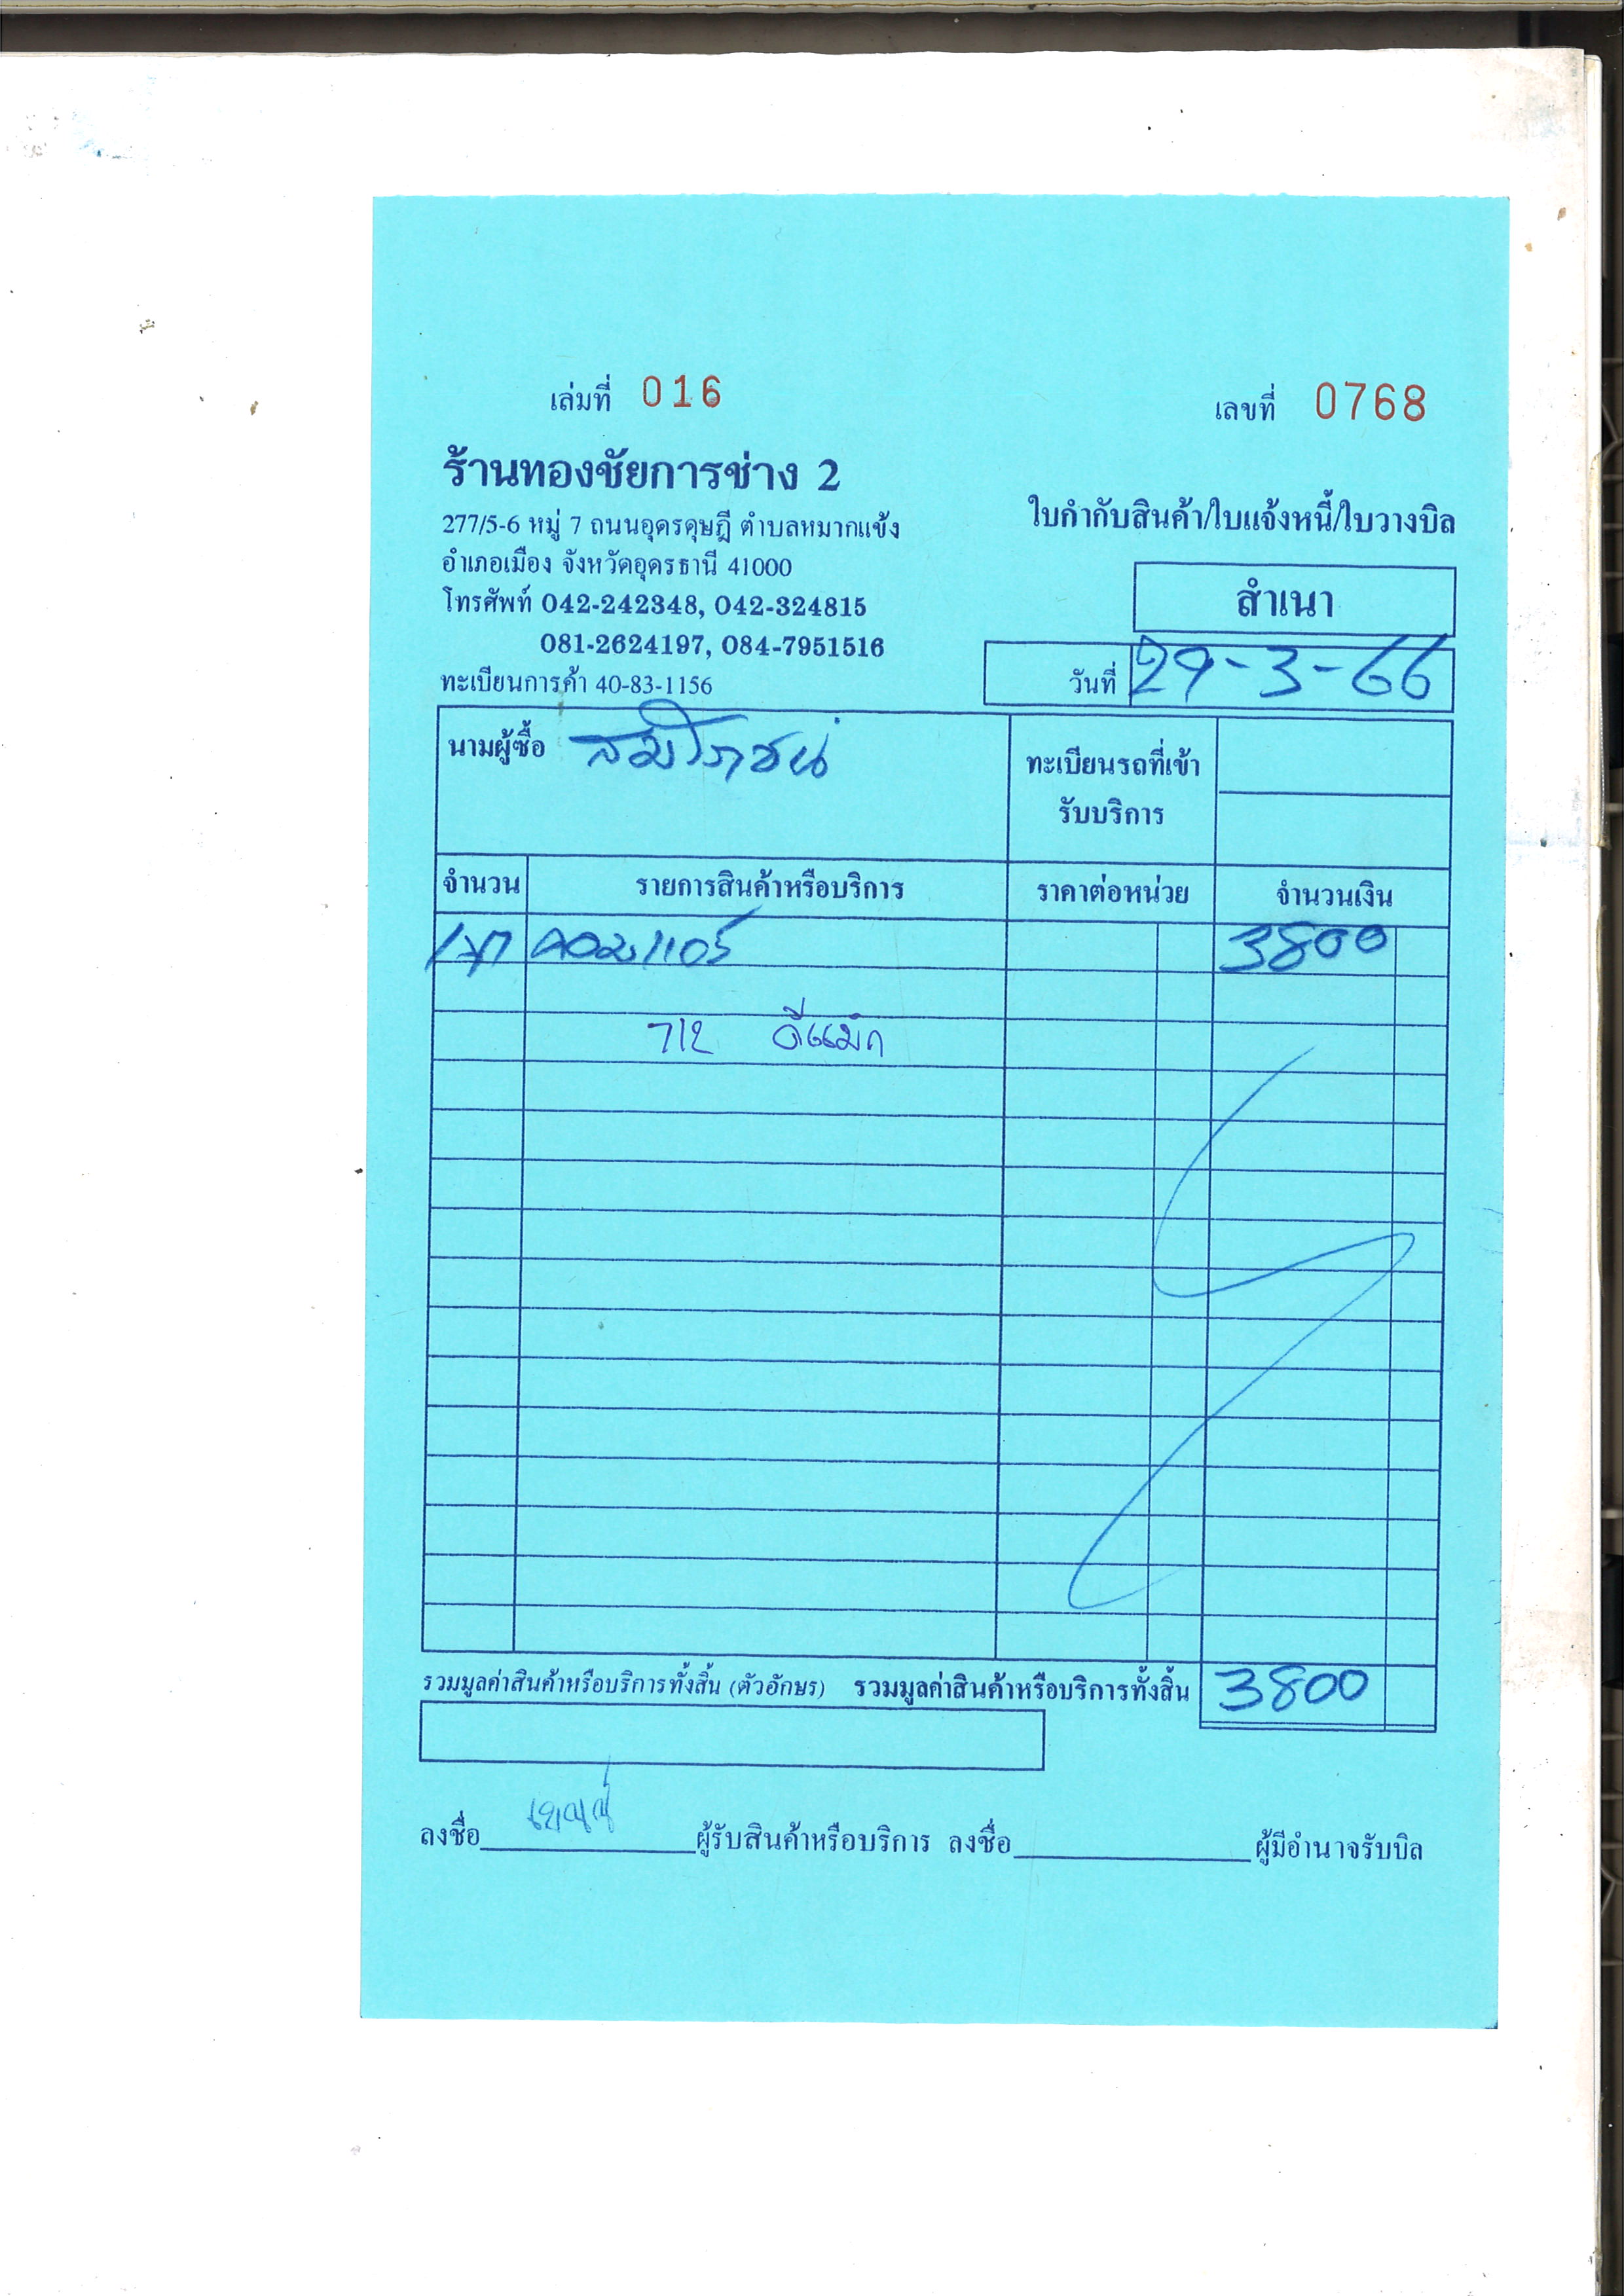 เล่มที่ 016
เลขที่ 0768
ร้านทองชัยการช่าง 2
277/5-6 หมู่ 7 ถนนอุดรดุษฎี ตำบลหมากแข้ง
อำเภอเมือง จังหวัดอุดรธานี 41000
โทรศัพท์ 042-242348, 042-324815
081-2624197, 084-7951516
ทะเบียนการค้า 40-83-1156
ใบกำกับสินค้า/ใบแจ้งหนี้/ใบวางบิล
สำเนา
วันที่ 29-3-66
นามผู้ซื้อ สมโภชน์
ทะเบียนรถที่เข้า
รับบริการ
จำนวน รายการสินค้าหรือบริการ ราคาต่อหน่วย จำนวนเงิน
คอมเพรส 3800
712 ดีแม็ก
รวมมูลค่าสินค้าหรือบริการทั้งสิ้น (ตัวอักษร) รวมมูลค่าสินค้าหรือบริการทั้งสิ้น 3800
ลงชื่อ ผู้รับสินค้าหรือบริการ ลงชื่อ ผู้มีอำนาจรับบิล